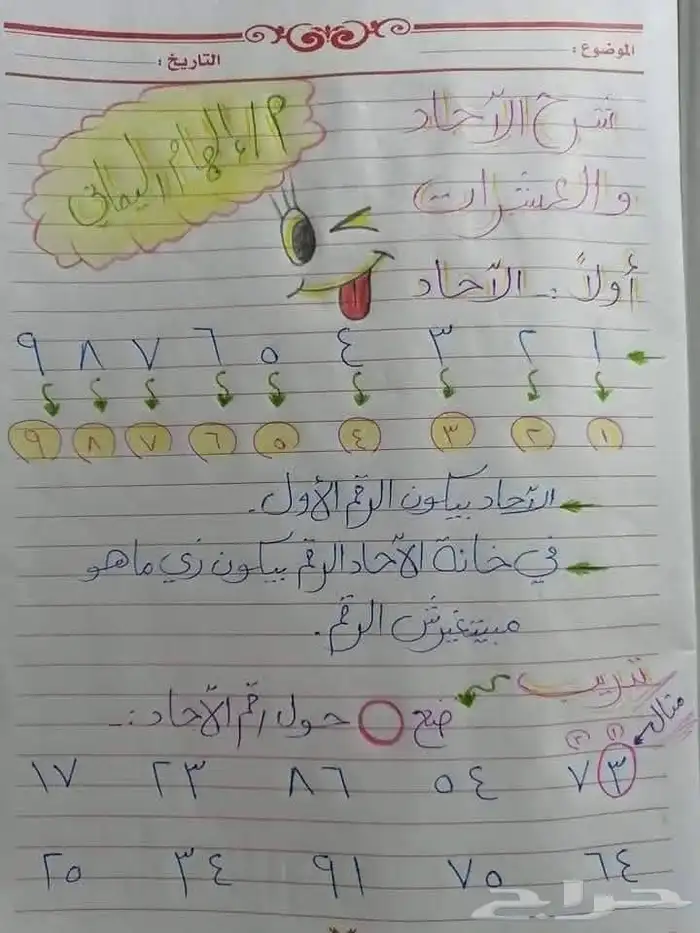 الموضوع :
التاريخ :
شرح الآحاد
والعشرات
م/ إلهام اليماني
أولاً :ـ الآحاد
١ ٢ ٣ ٤ ٥ ٦ ٧ ٨ ٩
١ ٢ ٣ ٤ ٥ ٦ ٧ ٨ ٩
الآحاد بيكون الرقم الأول.
في خانة الآحاد الرقم بيكون زي ما هو
مبيتغيرش الرقم.
تدريب
ضع ○ حول رقم الآحاد :ـ
مثال
(١) (٢)
٧٣ ٥٤ ٨٦ ٢٣ ١٧
٦٤ ٧٥ ٩١ ٣٤ ٢٥
حراج